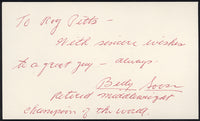 To Roy Pitts -
With sincere wishes
to a great guy - always.
Billy Soose
Retired middleweight
champion of the world.